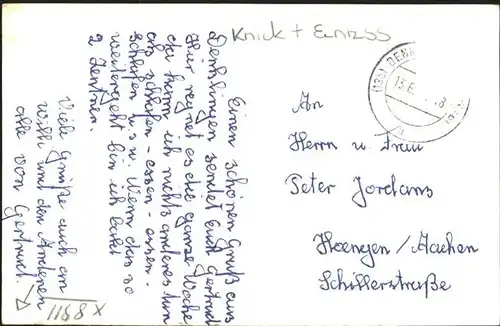 Knick + Einriss
Einen schönen Gruß aus
Denklingen sendet Euch Gertrud.
Hier regnet es die ganze Woche
da kann ich nichts anderes tun
als schlafen - essen - essen -
schlafen u.s.w. Wenn das so
weitergeht bin ich bald
2 Zentner.
Viele Grüße auch an
Willi und den Anderen
alle von Gertrud.
An
Herrn u. Frau
Peter Jordans
Hoengen/Aachen
Schillerstraße
1188 x